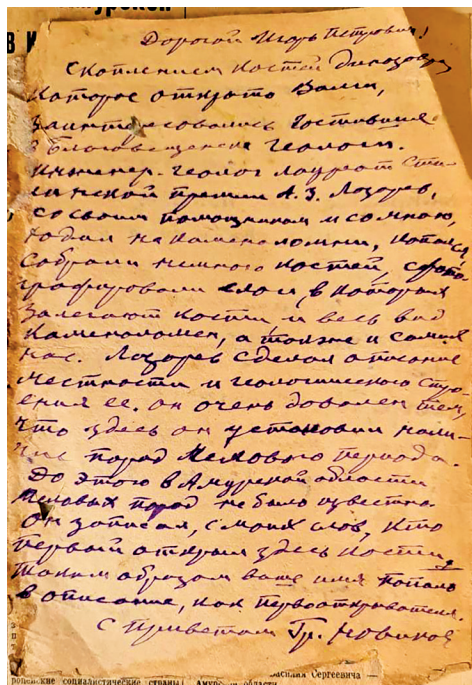 Дорогой Игорь Петрович!
Скоплением костей динозавра
которое открыто Вами,
заинтересовались гостившие
в Благовещенске геологи.
Инженер-геолог лауреат Ста-
линской премии А. З. Лазарев,
со своим помощником и со мною,
ходил на каменоломни, копался,
собрали немного костей, сфото-
графировали слои, в которых
залегают кости и весь вид
каменоломен, а также и самих
нас. Лазарев сделал описание
местности и геологического стро-
ения ее. он очень доволен тем,
что здесь он установил нали-
чие пород мелового периода.
До этого в Амурской области
меловых пород не было известно.
он записал, с моих слов, кто
первый открыл здесь кости,
таким образом ваше имя попало
в описание, как первооткрывателя.
с приветом Гр. Новиков
Василия Сергеевича —
ропейские социалистические страны! области